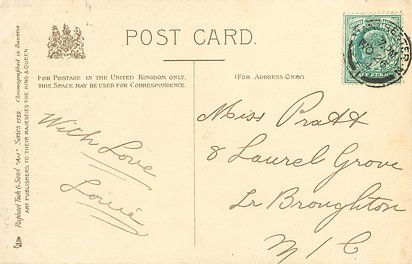 POST CARD.
FOR POSTAGE IN THE UNITED KINGDOM ONLY,
THIS SPACE MAY BE USED FOR CORRESPONDENCE.
(FOR ADDRESS ONLY.)
With Love
Louie
Miss Pratt
8 Laurel Grove
Lr Broughton
M/C.
Raphael Tuck & Sons' "Art" Series 1788 Chromographed in Bavaria
ART PUBLISHERS TO THEIR MAJESTIES THE KING & QUEEN.
HALF PENNY